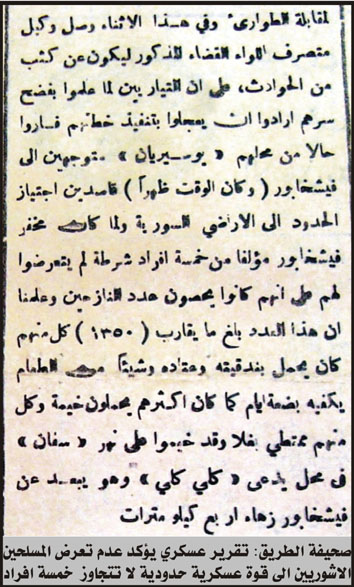 لمقابلة الطوارئ وفي هذا الاثناء وصل وكيل
متصرف اللواء القضاء المذكور ليكون عن كثب
من الحوادث، على ان التياريين لما علموا بفضح
سرهم ارادوا ان يعجلوا بتنفيذ خطتهم فساروا
حالا من محلهم « بوسيريان » متوجهين الى
فيشخابور ( وكان الوقت ظهراً ) قاصدين اجتياز
الحدود الى الاراضي السورية ولما كان مخفر
فيشخابور مؤلفا من خمسة افراد شرطة لم يتعرضوا
لهم على انهم كانوا يحصون عدد النازحين وعلمنا
ان هذا العدد بلغ ما يقارب ( ١٣٥٠ ) كل منهم
كان يحمل بندقيته وعتاده وشيئاً من الطعام
يكفيه بضعة ايام كما كان اكثرهم يحملون خيمة وكل
منهم ممتطي بغلا وقد خيموا على نهر « سفان »
في محل يدعى « كلي كلي » وهو يبعد عن
فيشخابور زهاء اربع كيلو مترات
صحيفة الطريق: تقرير عسكري يؤكد عدم تعرض المسلحين
الاشوريين الى قوة عسكرية حدودية لا تتجاوز خمسة افراد